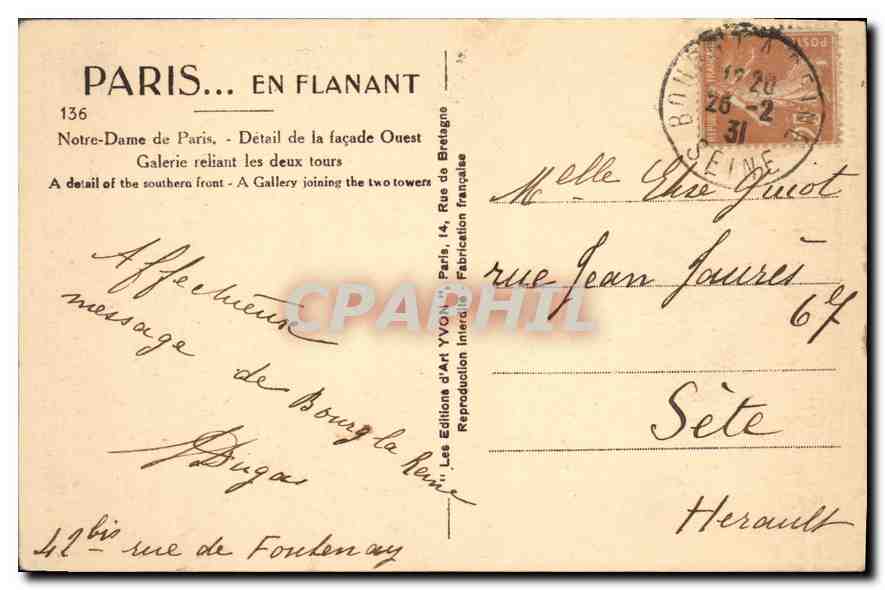 PARIS... EN FLANANT
136
Notre-Dame de Paris. - Détail de la façade Ouest
Galerie reliant les deux tours
A detail of the southern front - A Gallery joining the two towers
Affectueuse
message
de Bourg la Reine
Dugas
42 bis rue de Fontenay
"Les Editions d'Art YVON", Paris, 14, Rue de Bretagne
Reproduction Interdite Fabrication française
POSTES
25
BOURG LA REINE
18 20
26 -2
31
SEINE
Melle Elise Guiot
rue Jean Jaurès
67
Sète
Herault
CPAPHIL